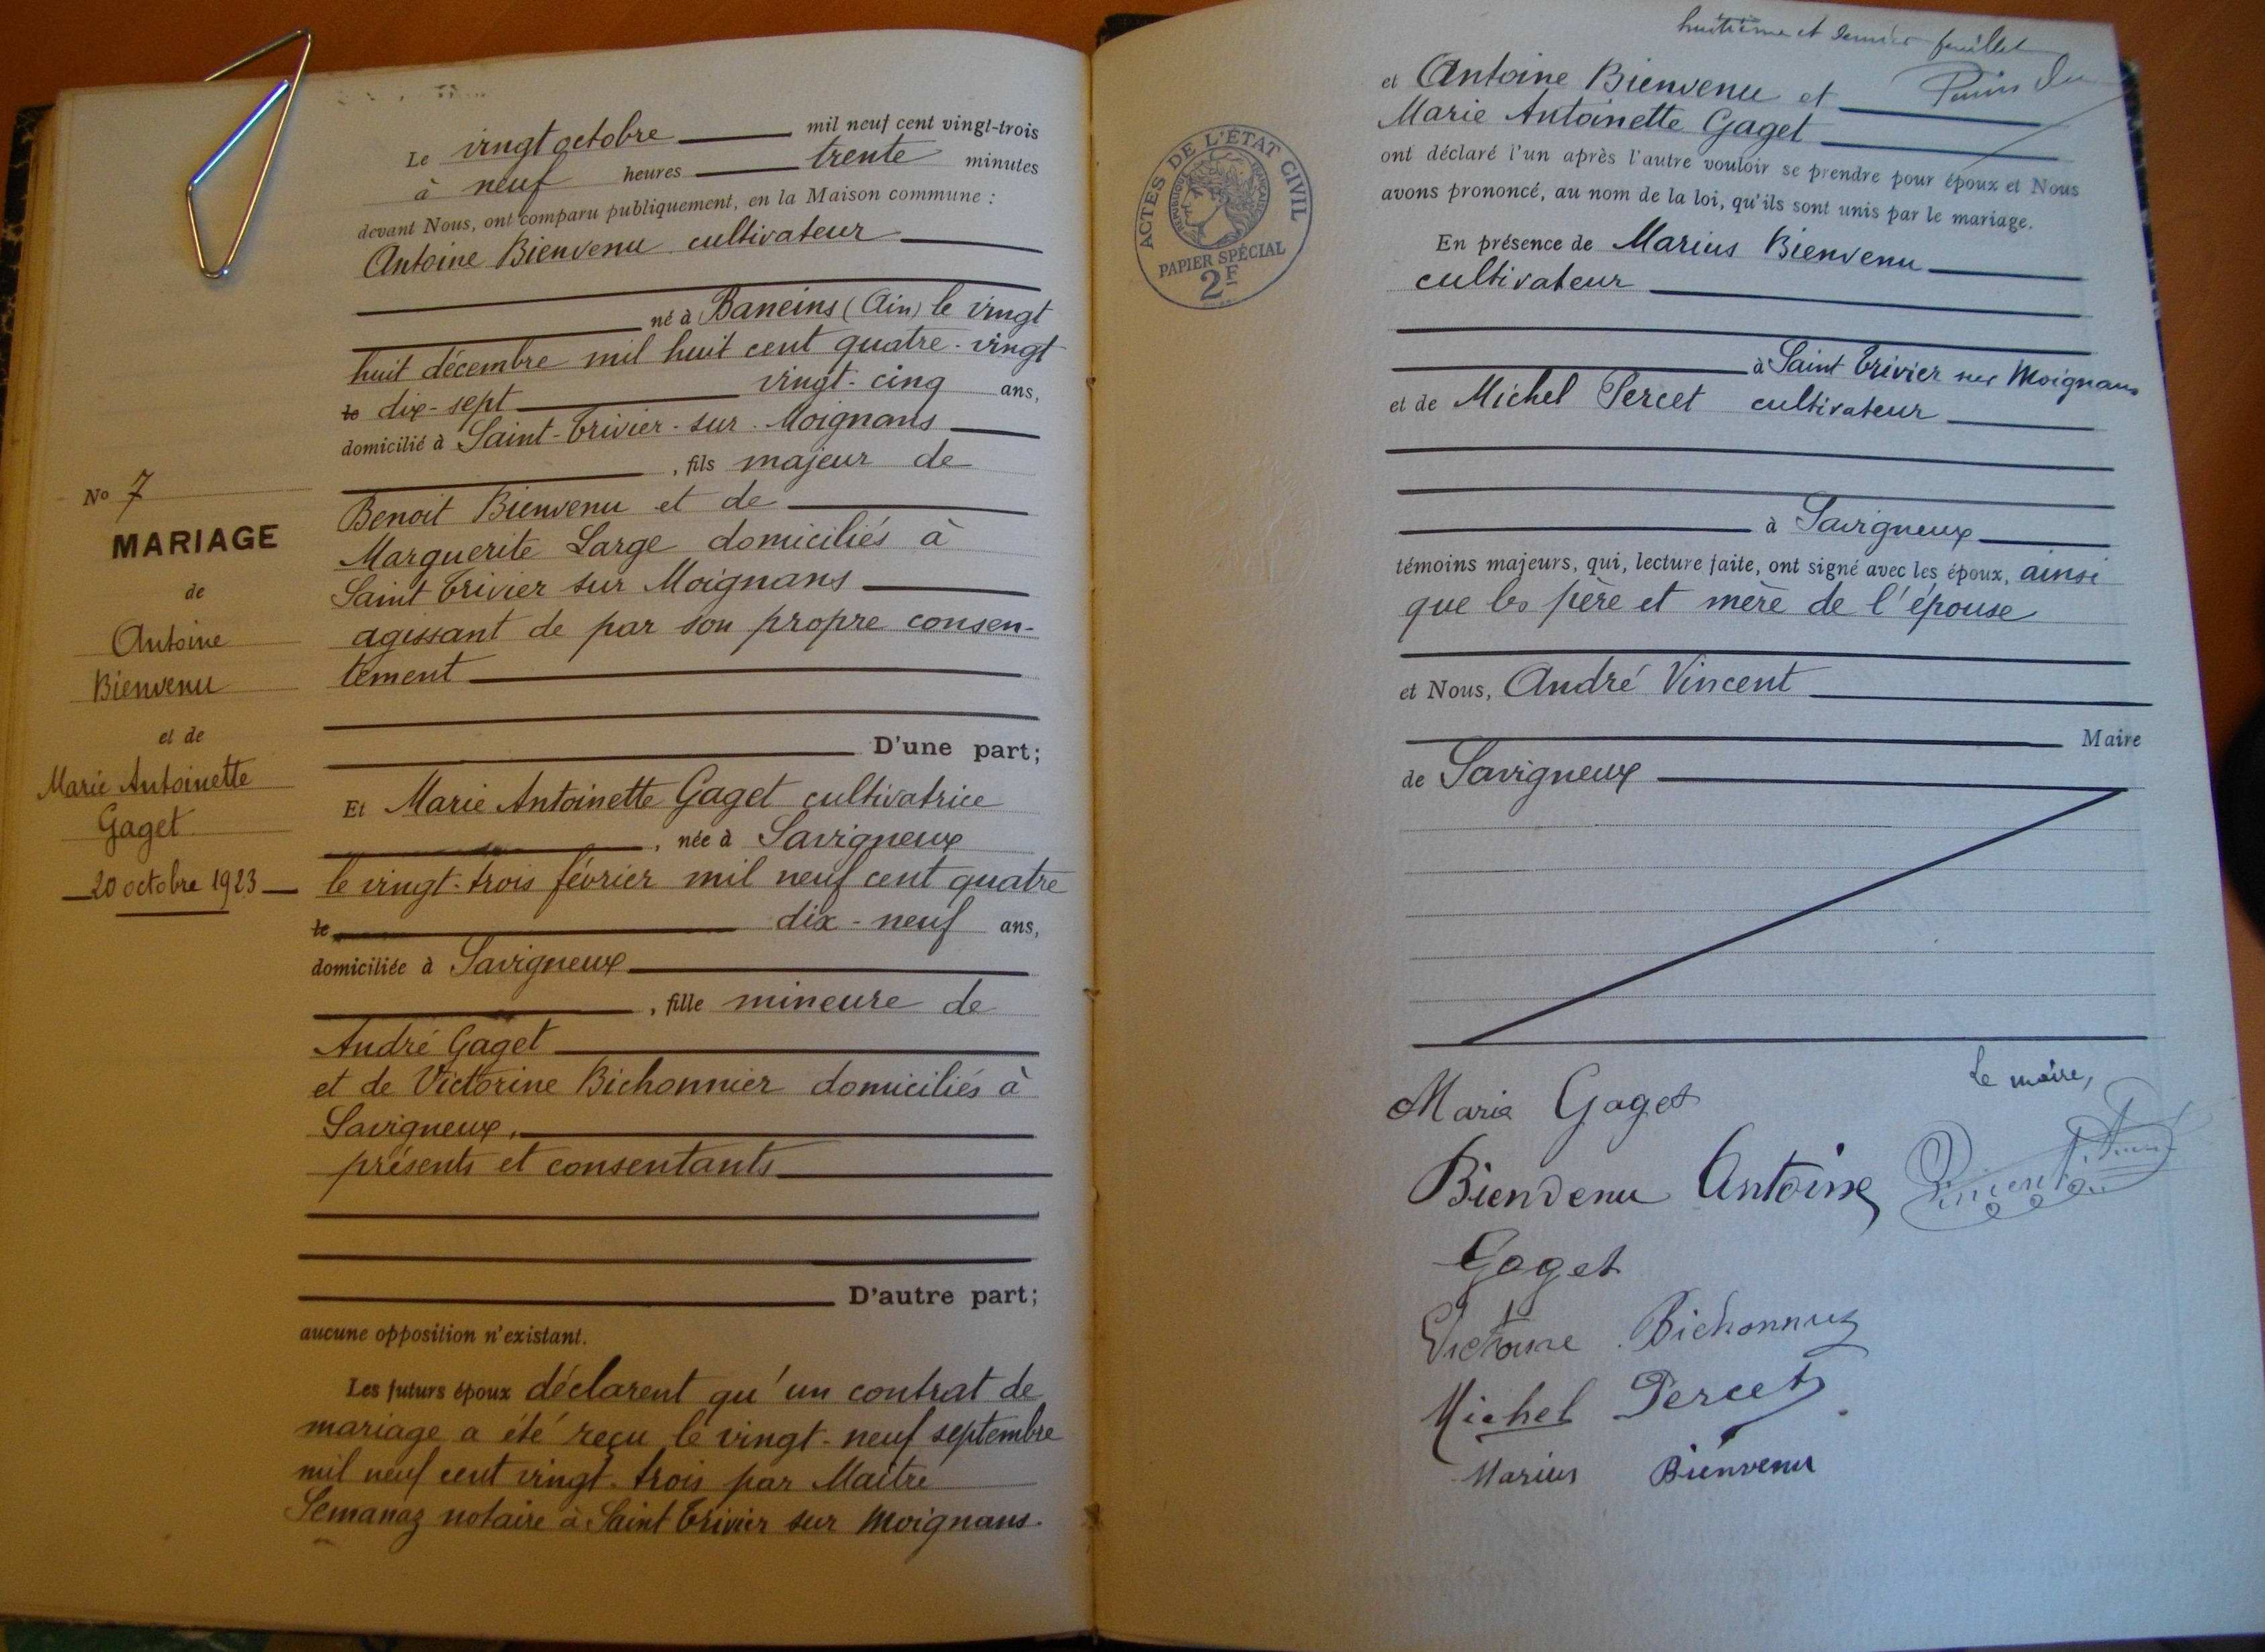 N° 7
MARIAGE
de
Antoine
Bienvenu
et de
Marie Antoinette
Gaget
20 octobre 1923
Le vingt octobre mil neuf cent vingt-trois
à neuf heures trente minutes
devant Nous, ont comparu publiquement, en la Maison commune :
Antoine Bienvenu cultivateur
né à Baneins (Ain) le vingt
huit décembre mil huit cent quatre-vingt
le dix-sept vingt-cinq ans,
domicilié à Saint-Trivier-sur-Moignans
, fils majeur de
Benoit Bienvenu et de
Marguerite Large domiciliés à
Saint Trivier sur Moignans
agissant de par son propre consen-
tement
D'une part;
Et Marie Antoinette Gaget cultivatrice
, née à Savigneux
le vingt-trois février mil neuf cent quatre
le dix-neuf ans,
domiciliée à Savigneux
, fille mineure de
André Gaget
et de Victorine Bichonnier domiciliés à
Savigneux,
présents et consentants
D'autre part;
aucune opposition n'existant.
Les futurs époux déclarent qu'un contrat de
mariage a été reçu le vingt-neuf septembre
mil neuf cent vingt-trois par Maître
Semanaz notaire à Saint Trivier sur Moignans.
huitième et dernier feuillet
ACTES DE L'ÉTAT CIVIL
RÉPUBLIQUE FRANÇAISE
PAPIER SPÉCIAL
2F
et Antoine Bienvenu et
Marie Antoinette Gaget
ont déclaré l'un après l'autre vouloir se prendre pour époux et Nous
avons prononcé, au nom de la loi, qu'ils sont unis par le mariage.
En présence de Marius Bienvenu
cultivateur
à Saint Trivier sur Moignans
et de Michel Percet cultivateur
à Savigneux
témoins majeurs, qui, lecture faite, ont signé avec les époux, ainsi
que les père et mère de l'épouse
et Nous, André Vincent
Maire
de Savigneux
Le maire,
Maria Gaget
Bienvenu Antoine
Vincent
Gaget
Victorine Bichonnier
Michel Percet
Marius Bienvenu